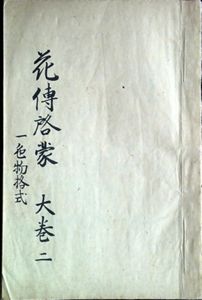 花傳啓蒙 大巻二
一色物格式